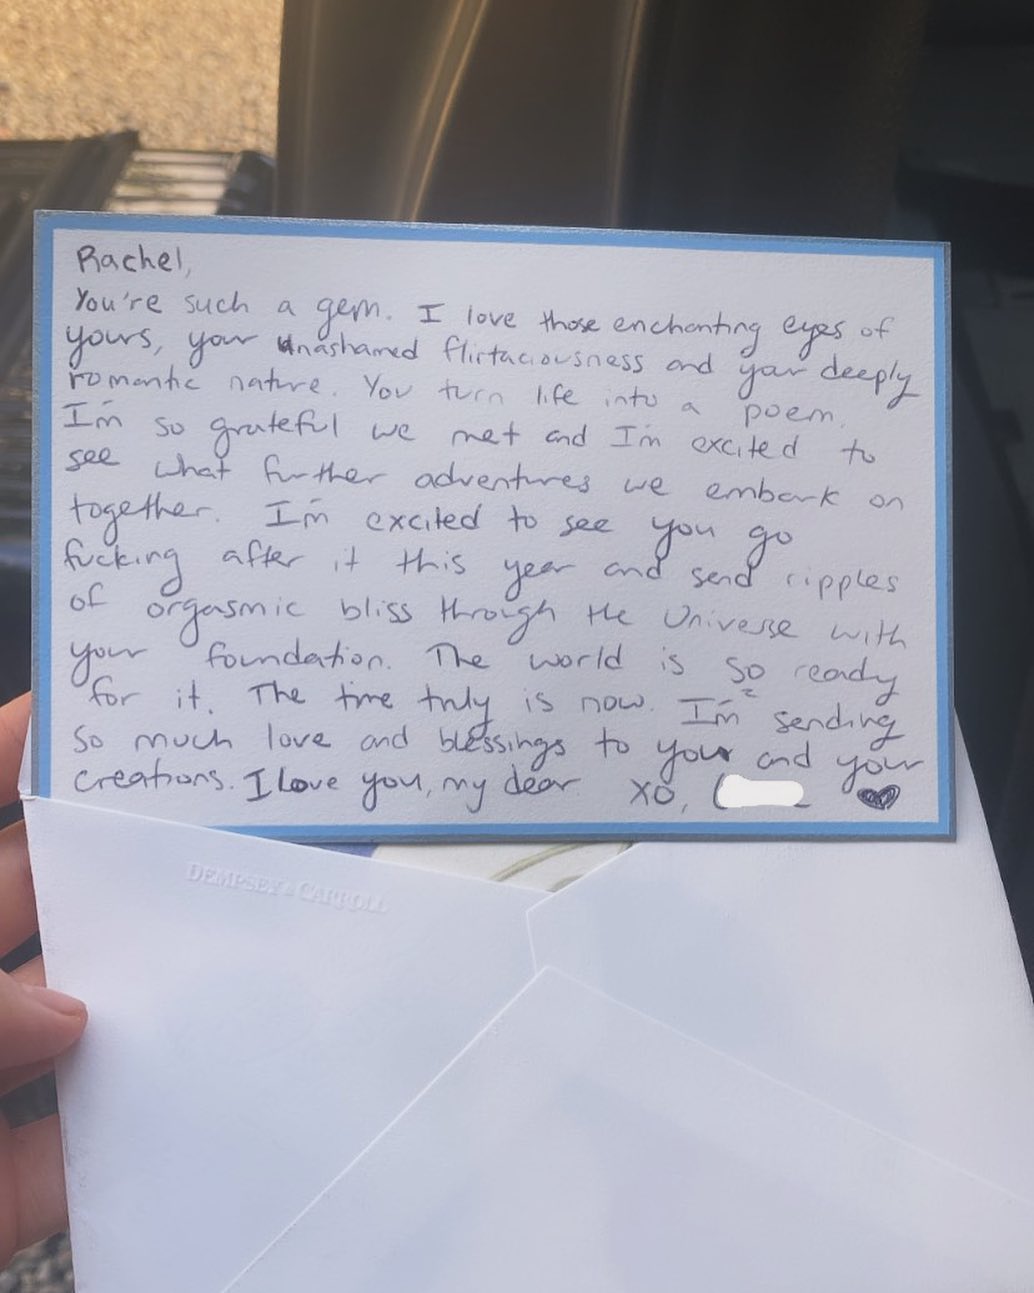 Rachel,
You're such a gem. I love those enchanting eyes of
yours, your unashamed flirtaciousness and your deeply
romantic nature. You turn life into a poem.
I'm so grateful we met and I'm excited to
see what further adventures we embark on
together. I'm excited to see you go
fucking after it this year and send ripples
of orgasmic bliss through the Universe with
your foundation. The world is so ready
for it. The time truly is now. I'm sending
so much love and blessings to you and your
creations. I love you, my dear. XO,
DEMPSEY & CARROLL